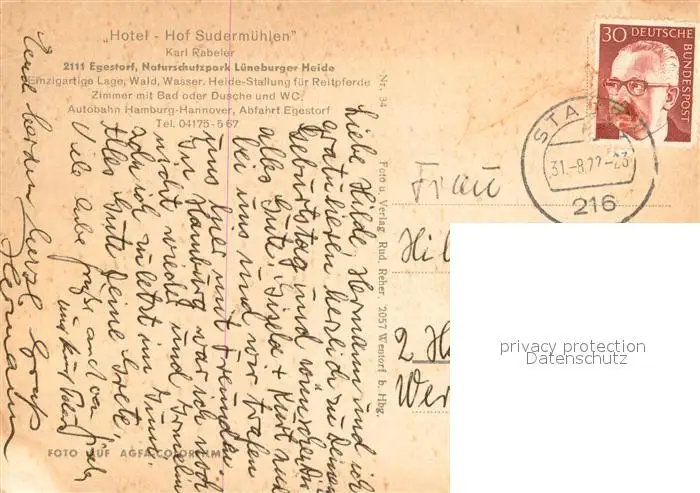 „Hotel - Hof Sudermühlen"
Karl Rabeler
2111 Egestorf, Naturschutzpark Lüneburger Heide
Einzigartige Lage, Wald, Wasser. Heide-Stallung für Reitpferde
Zimmer mit Bad oder Dusche und WC.
Autobahn Hamburg-Hannover, Abfahrt Egestorf
Tel. 04175-567
Liebe Hilde, Hermann und ich
gratulieren herzlich zu Deinem
Geburtstag und wünschen Dir
alles Gute. Gisela + Kurt sind
bei uns und wir trafen
uns hier mit Freunden.
In Hamburg war ich noch
nicht wieder und
sah ich zuletzt im Juni.
Alles Gute Deine Grete,
Viele liebe Grüße auch von
und Kurt
Gruß
Hermann
Nr. 34
Foto u. Verlag Rud. Reher, 2057 Wentorf b. Hbg.
FOTO AUF AGFACOLORFILM
30 DEUTSCHE
BUNDESPOST
STA
31.-8.72-23
216
Frau
Hil
2 H
Wer
privacy protection
Datenschutz